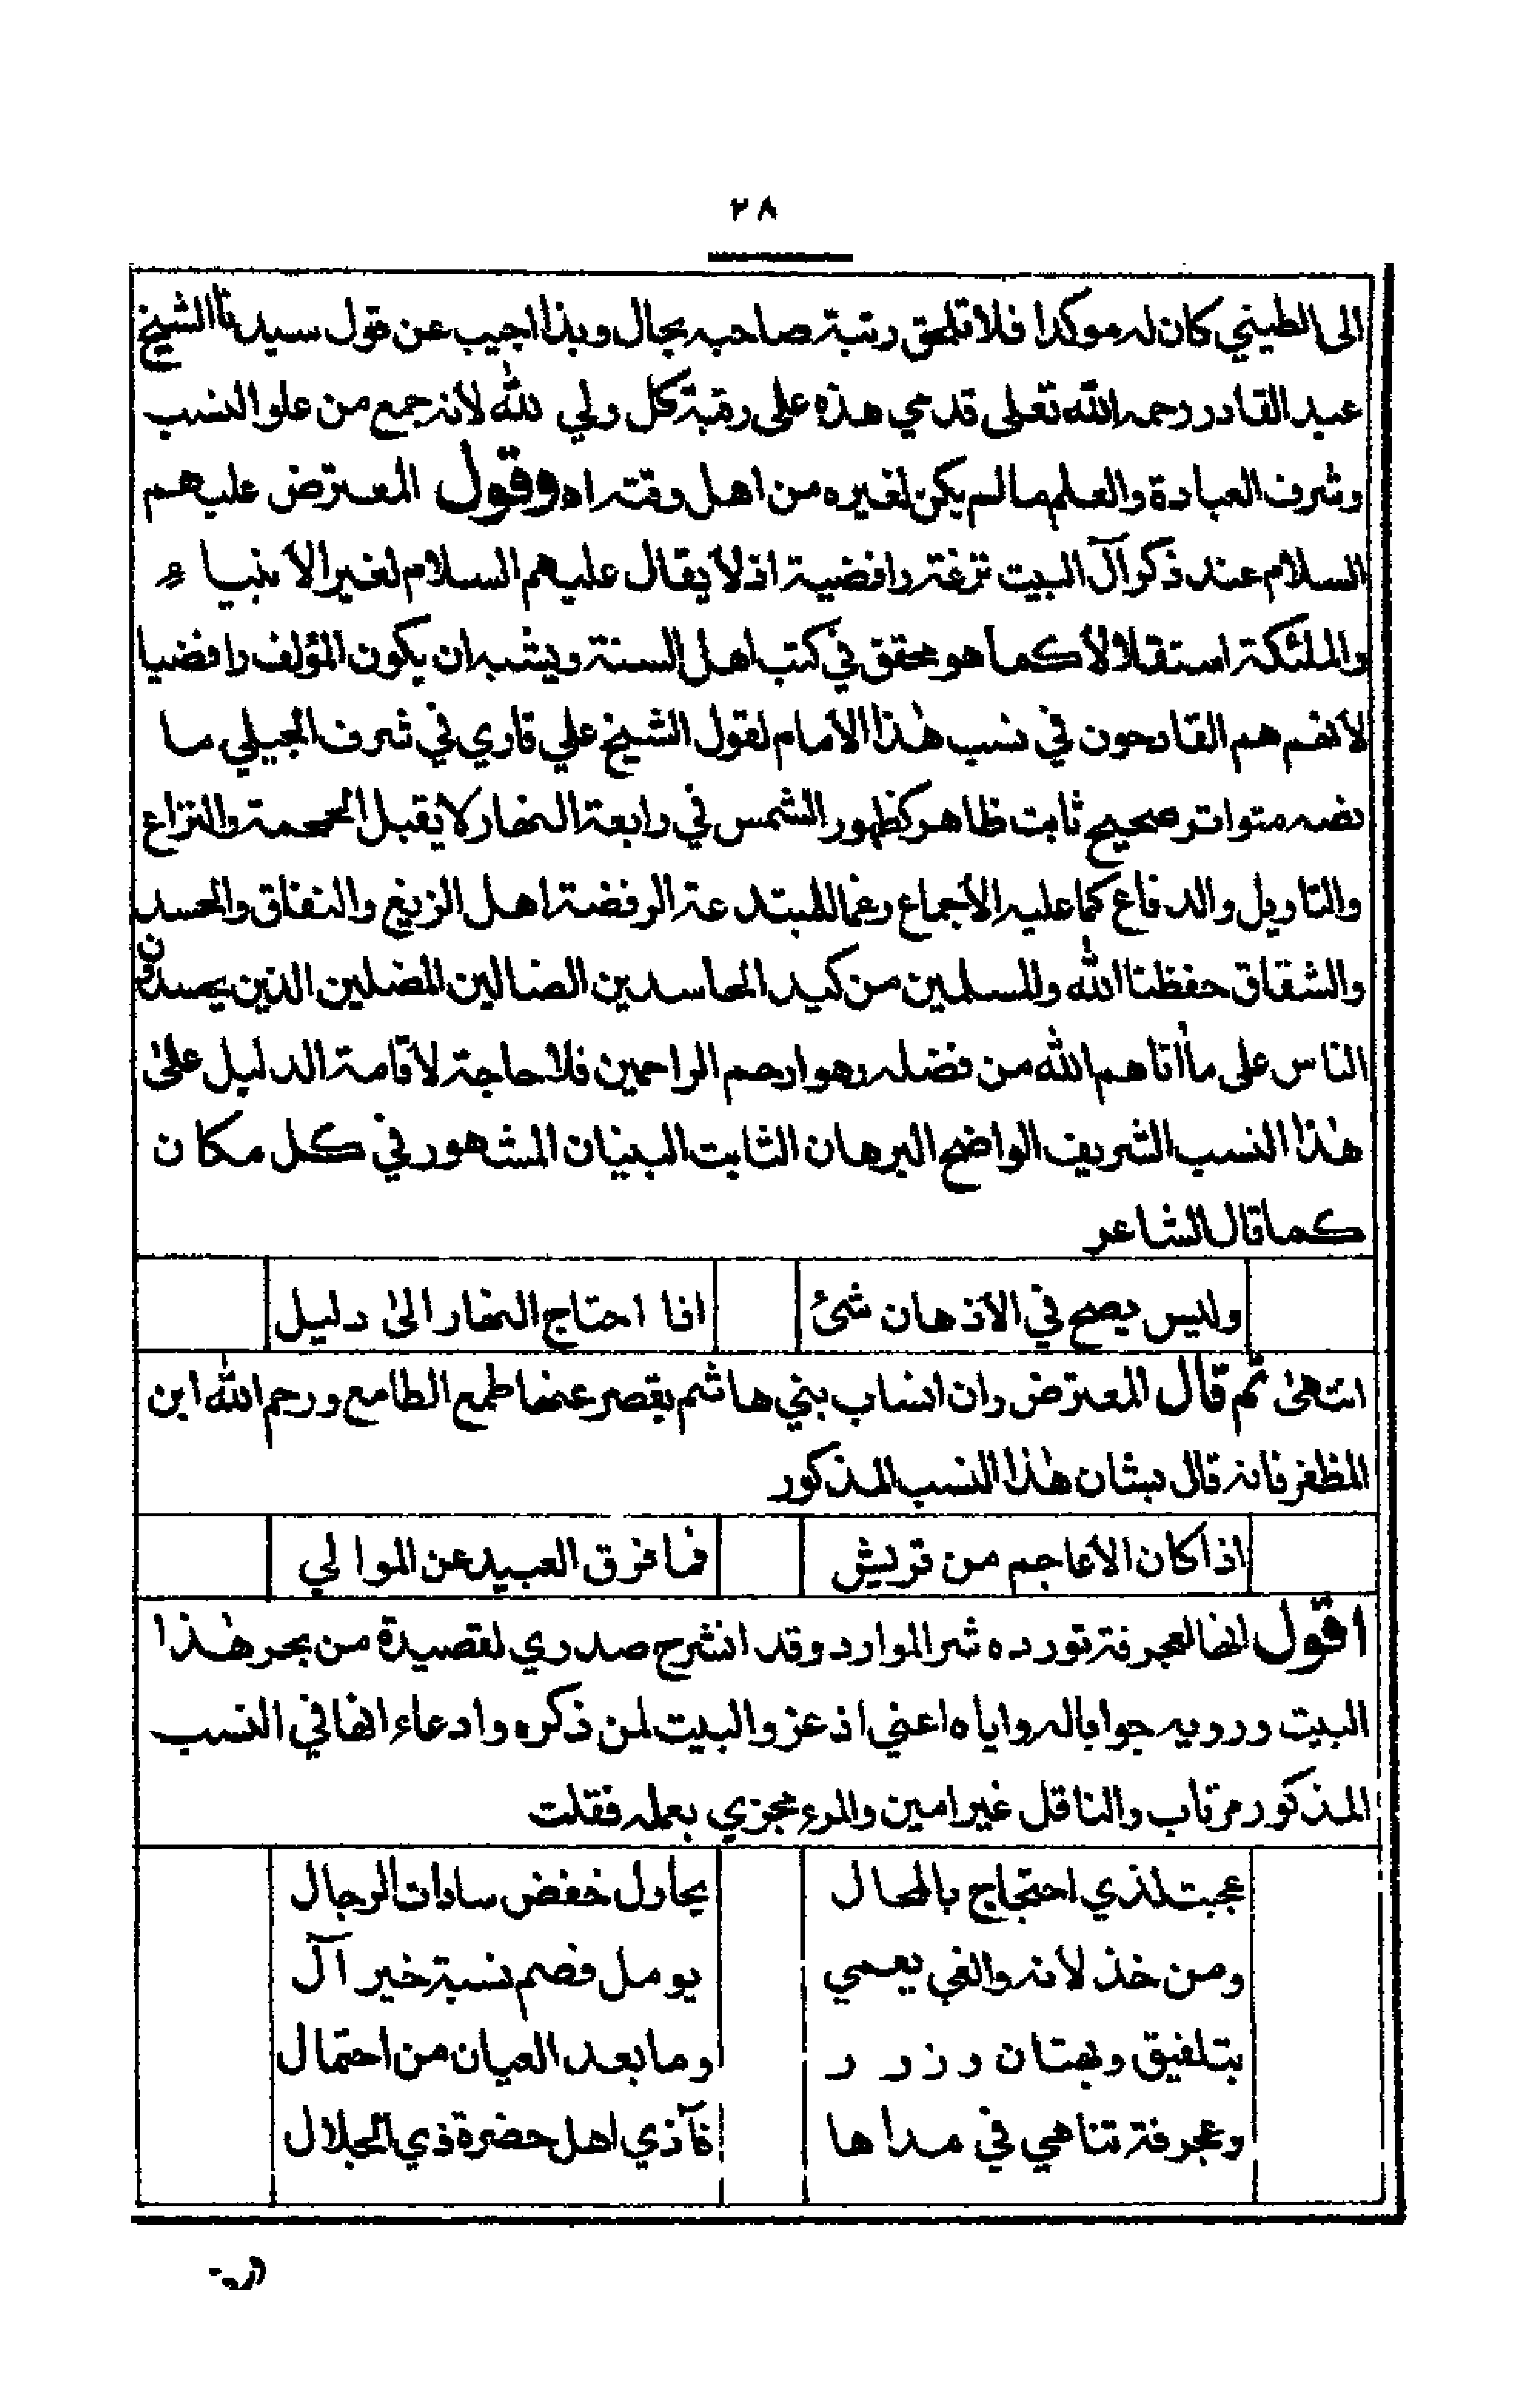 ٢٨
الى الطيني كان له موكدا فلا تلحق رتبة صاحبه بحال وبذا اجيب عن قول سيدنا الشيخ
عبد القادر رحمه الله تعالى قدمي هذه على رقبة كل ولي لله لانه جمع من علو النسب
وشرف العبادة والعلم ما لم يكن لغيره من اهل وقته اه وقول المعترض عليهم
السلام عند ذكر آل البيت نزغة رافضية اذ لا يقال عليهم السلام لغير الانبياء
والملئكة استقلالا كما هو محقق في كتب اهل السنة ويشبه ان يكون المؤلف رافضيا
لانهم هم القادحون في نسب هذا الامام لقول الشيخ علي قاري في شرف الجيلي ما
نصه متواتر صحيح ثابت ظاهر كظهور الشمس في رابعة النهار لا يقبل المجمجمة والنزاع
والتاويل والدفاع كما عليه الاجماع رغما للمبتدعة الرفضة اهل الزيغ والنفاق والحسد
والشقاق حفظنا الله والمسلمين من كيد الحاسدين الضالين المضلين الذين يحسدون
الناس على ما اتاهم الله من فضله وهو ارحم الراحمين فلا حاجة لاقامة الدليل على
هذا النسب الشريف الواضح البرهان الثابت البنيان المشهور في كل مكان
كما قال الشاعر
وليس يصح في الاذهان شئ اذا احتاج النهار الى دليل
انتهى ثم قال المعترض وان انساب بني هاشم يقصر عنها طمع الطامع ورحم الله ابن
المظفر فانه قال بشان هذا النسب المذكور
اذا كان الاعاجم من قريش فما فرق العبيد عن الموالي
اقول انها لعجرفة تورده شر الموارد وقد انشرح صدري لقصيدة من بحر هذا
البيت ورويه جوابا له واياه اعني اذ عزو البيت لمن ذكره وادعاء انها في النسب
المذكور مرتاب والناقل غير امين والمرء مجزي بعمله فقلت
عجبت لذي احتجاج بالمحال يحاول خفض سادات الرجال
ومن خذلانه والغي يعمي يومل فصم نسبة خير آل
بتلفيق وبهتان وزور وما بعد العيان من احتمال
وعجرفة تناهي في مداها فآذي اهل حضرة ذي الجلال